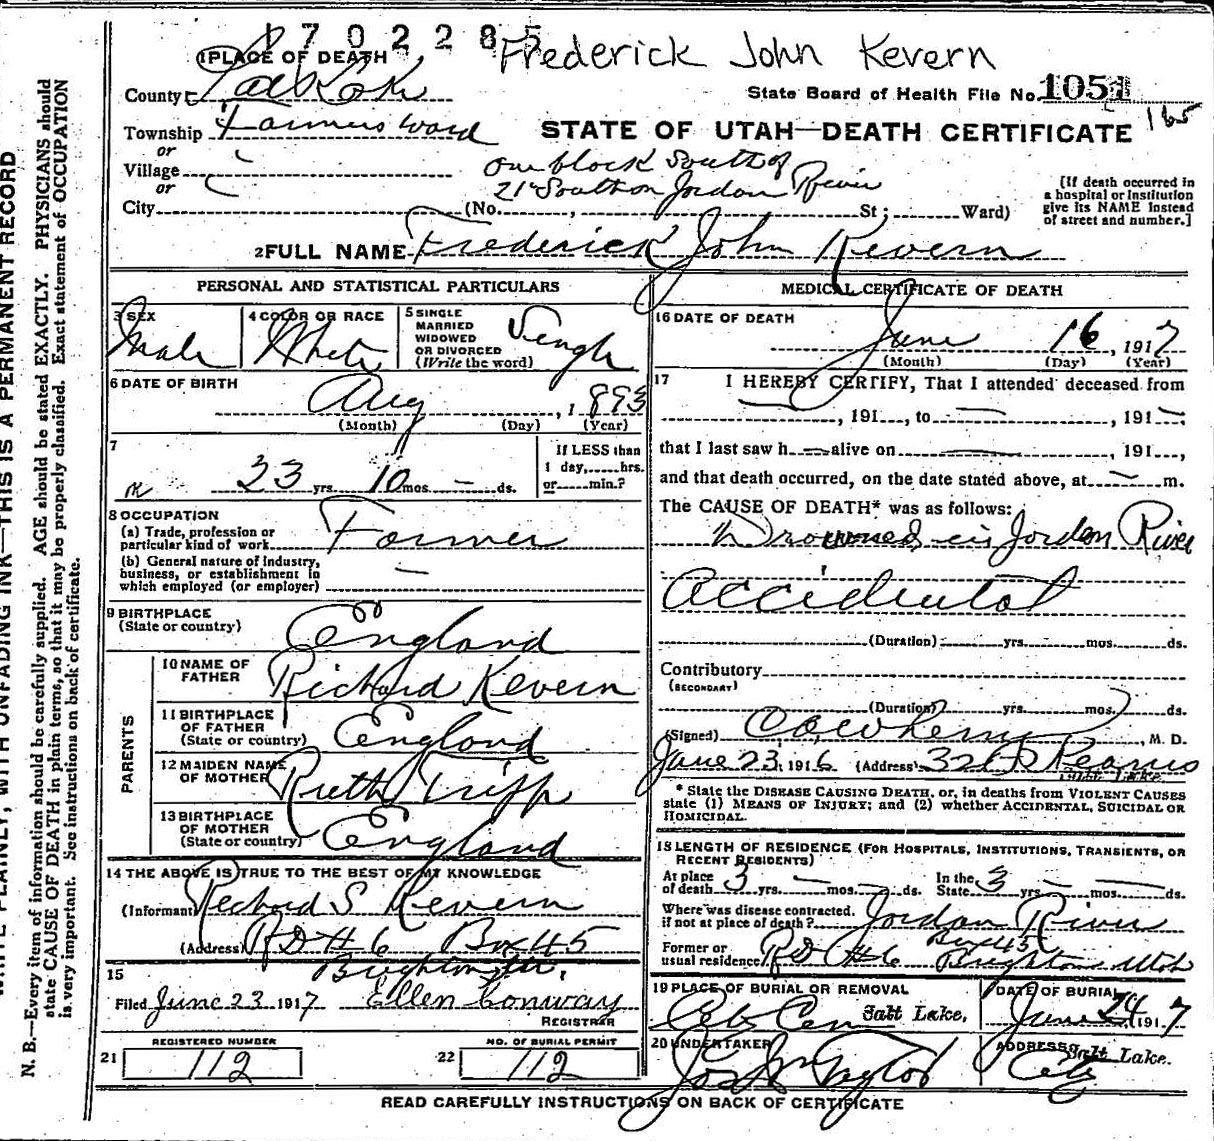 1702285
Frederick John Kevern
1 PLACE OF DEATH
County Salt Lake
State Board of Health File No. 1051
165
Township Farmers Ward
STATE OF UTAH—DEATH CERTIFICATE
or
Village
one block South of
or
21st South on Jordan River
City (No. , St; Ward)
[If death occurred in
a hospital or institution
give its NAME instead
of street and number.]
2 FULL NAME Frederick John Kevern
PERSONAL AND STATISTICAL PARTICULARS
3 SEX
Male
4 COLOR OR RACE
White
5 SINGLE
MARRIED
WIDOWED
OR DIVORCED
(Write the word)
Single
6 DATE OF BIRTH
Aug , 1893
(Month) (Day) (Year)
7
23 yrs. 10 mos. — ds.
If LESS than
1 day,......hrs.
or......min.?
8 OCCUPATION
(a) Trade, profession or
particular kind of work Farmer
(b) General nature of industry,
business, or establishment in
which employed (or employer) —
9 BIRTHPLACE
(State or country) England
PARENTS
10 NAME OF
FATHER Richard Kevern
11 BIRTHPLACE
OF FATHER
(State or country) England
12 MAIDEN NAME
OF MOTHER Ruth Tripp
13 BIRTHPLACE
OF MOTHER
(State or country) England
14 THE ABOVE IS TRUE TO THE BEST OF MY KNOWLEDGE
(Informant) Richard S Kevern
(Address) RD # 6 Box 45
Brighton
15
Filed June 23 1917 Ellen Conway
REGISTRAR
21 REGISTERED NUMBER
112
22 NO. OF BURIAL PERMIT
112
MEDICAL CERTIFICATE OF DEATH
16 DATE OF DEATH
June 16 , 1917
(Month) (Day) (Year)
17 I HEREBY CERTIFY, That I attended deceased from
— , 191..., to — , 191—
that I last saw h— alive on — , 191...,
and that death occurred, on the date stated above, at — m.
The CAUSE OF DEATH* was as follows:
Drowned in Jordan River
Accidental
(Duration) yrs. mos. ds.
Contributory
(SECONDARY)
(Duration) yrs. mos. ds.
(Signed) , M. D.
June 23, 1916 (Address) Kearns
Salt Lake
* State the DISEASE CAUSING DEATH, or, in deaths from VIOLENT CAUSES
state (1) MEANS OF INJURY; and (2) whether ACCIDENTAL, SUICIDAL OR
HOMICIDAL.
18 LENGTH OF RESIDENCE (FOR HOSPITALS, INSTITUTIONS, TRANSIENTS, OR
RECENT RESIDENTS)
At place
of death 3 yrs. — mos. — ds.
In the
State 3 yrs. — mos. — ds.
Where was disease contracted,
if not at place of death? Jordan River
Former or
usual residence RD #6 Box 45 Brighton Utah
19 PLACE OF BURIAL OR REMOVAL
City Cem Salt Lake,
DATE OF BURIAL
June 24, 1917
20 UNDERTAKER
Jos Wm Taylor
ADDRESS
City Salt Lake.
READ CAREFULLY INSTRUCTIONS ON BACK OF CERTIFICATE
WRITE PLAINLY, WITH UNFADING INK—THIS IS A PERMANENT RECORD
N. B.—Every item of information should be carefully supplied. AGE should be stated EXACTLY. PHYSICIANS should
state CAUSE OF DEATH in plain terms, so that it may be properly classified. Exact statement of OCCUPATION
is very important. See instructions on back of certificate.